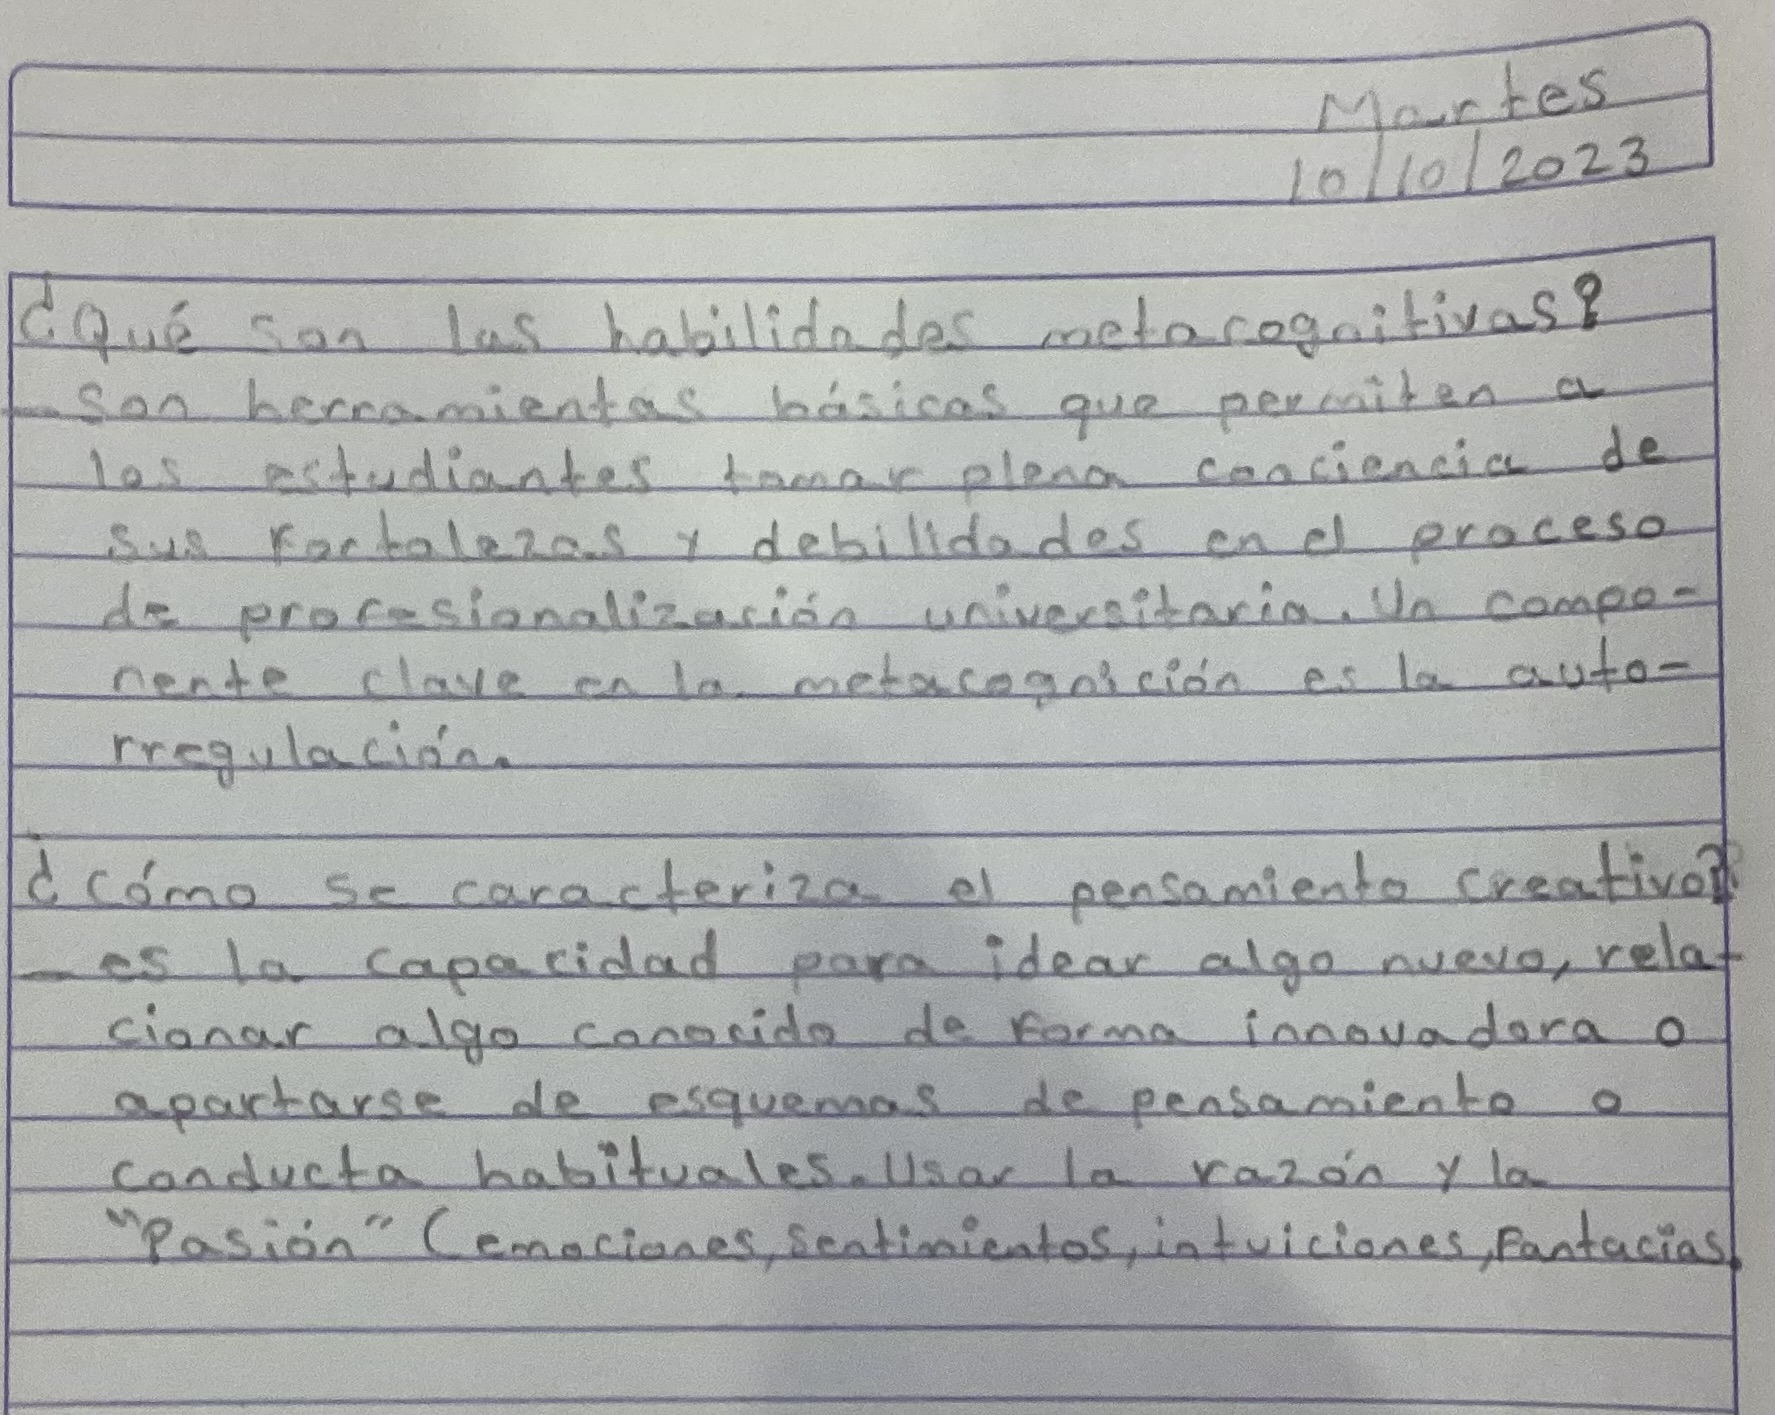 Martes
10/10/2023
¿Qué son las habilidades metacognitivas?
- Son herramientas básicas que permiten a
los estudiantes tomar plena conciencia de
sus fortalezas y debilidades en el proceso
de profesionalización universitaria. Un compo-
nente clave en la metacognición es la auto-
rregulación.
¿Cómo se caracteriza el pensamiento creativo?
- es la capacidad para idear algo nuevo, rela-
cionar algo conocido de forma innovadora o
apartarse de esquemas de pensamiento o
conducta habituales. Usar la razón y la
"Pasión" (emociones, sentimientos, intuiciones, Fantacias)